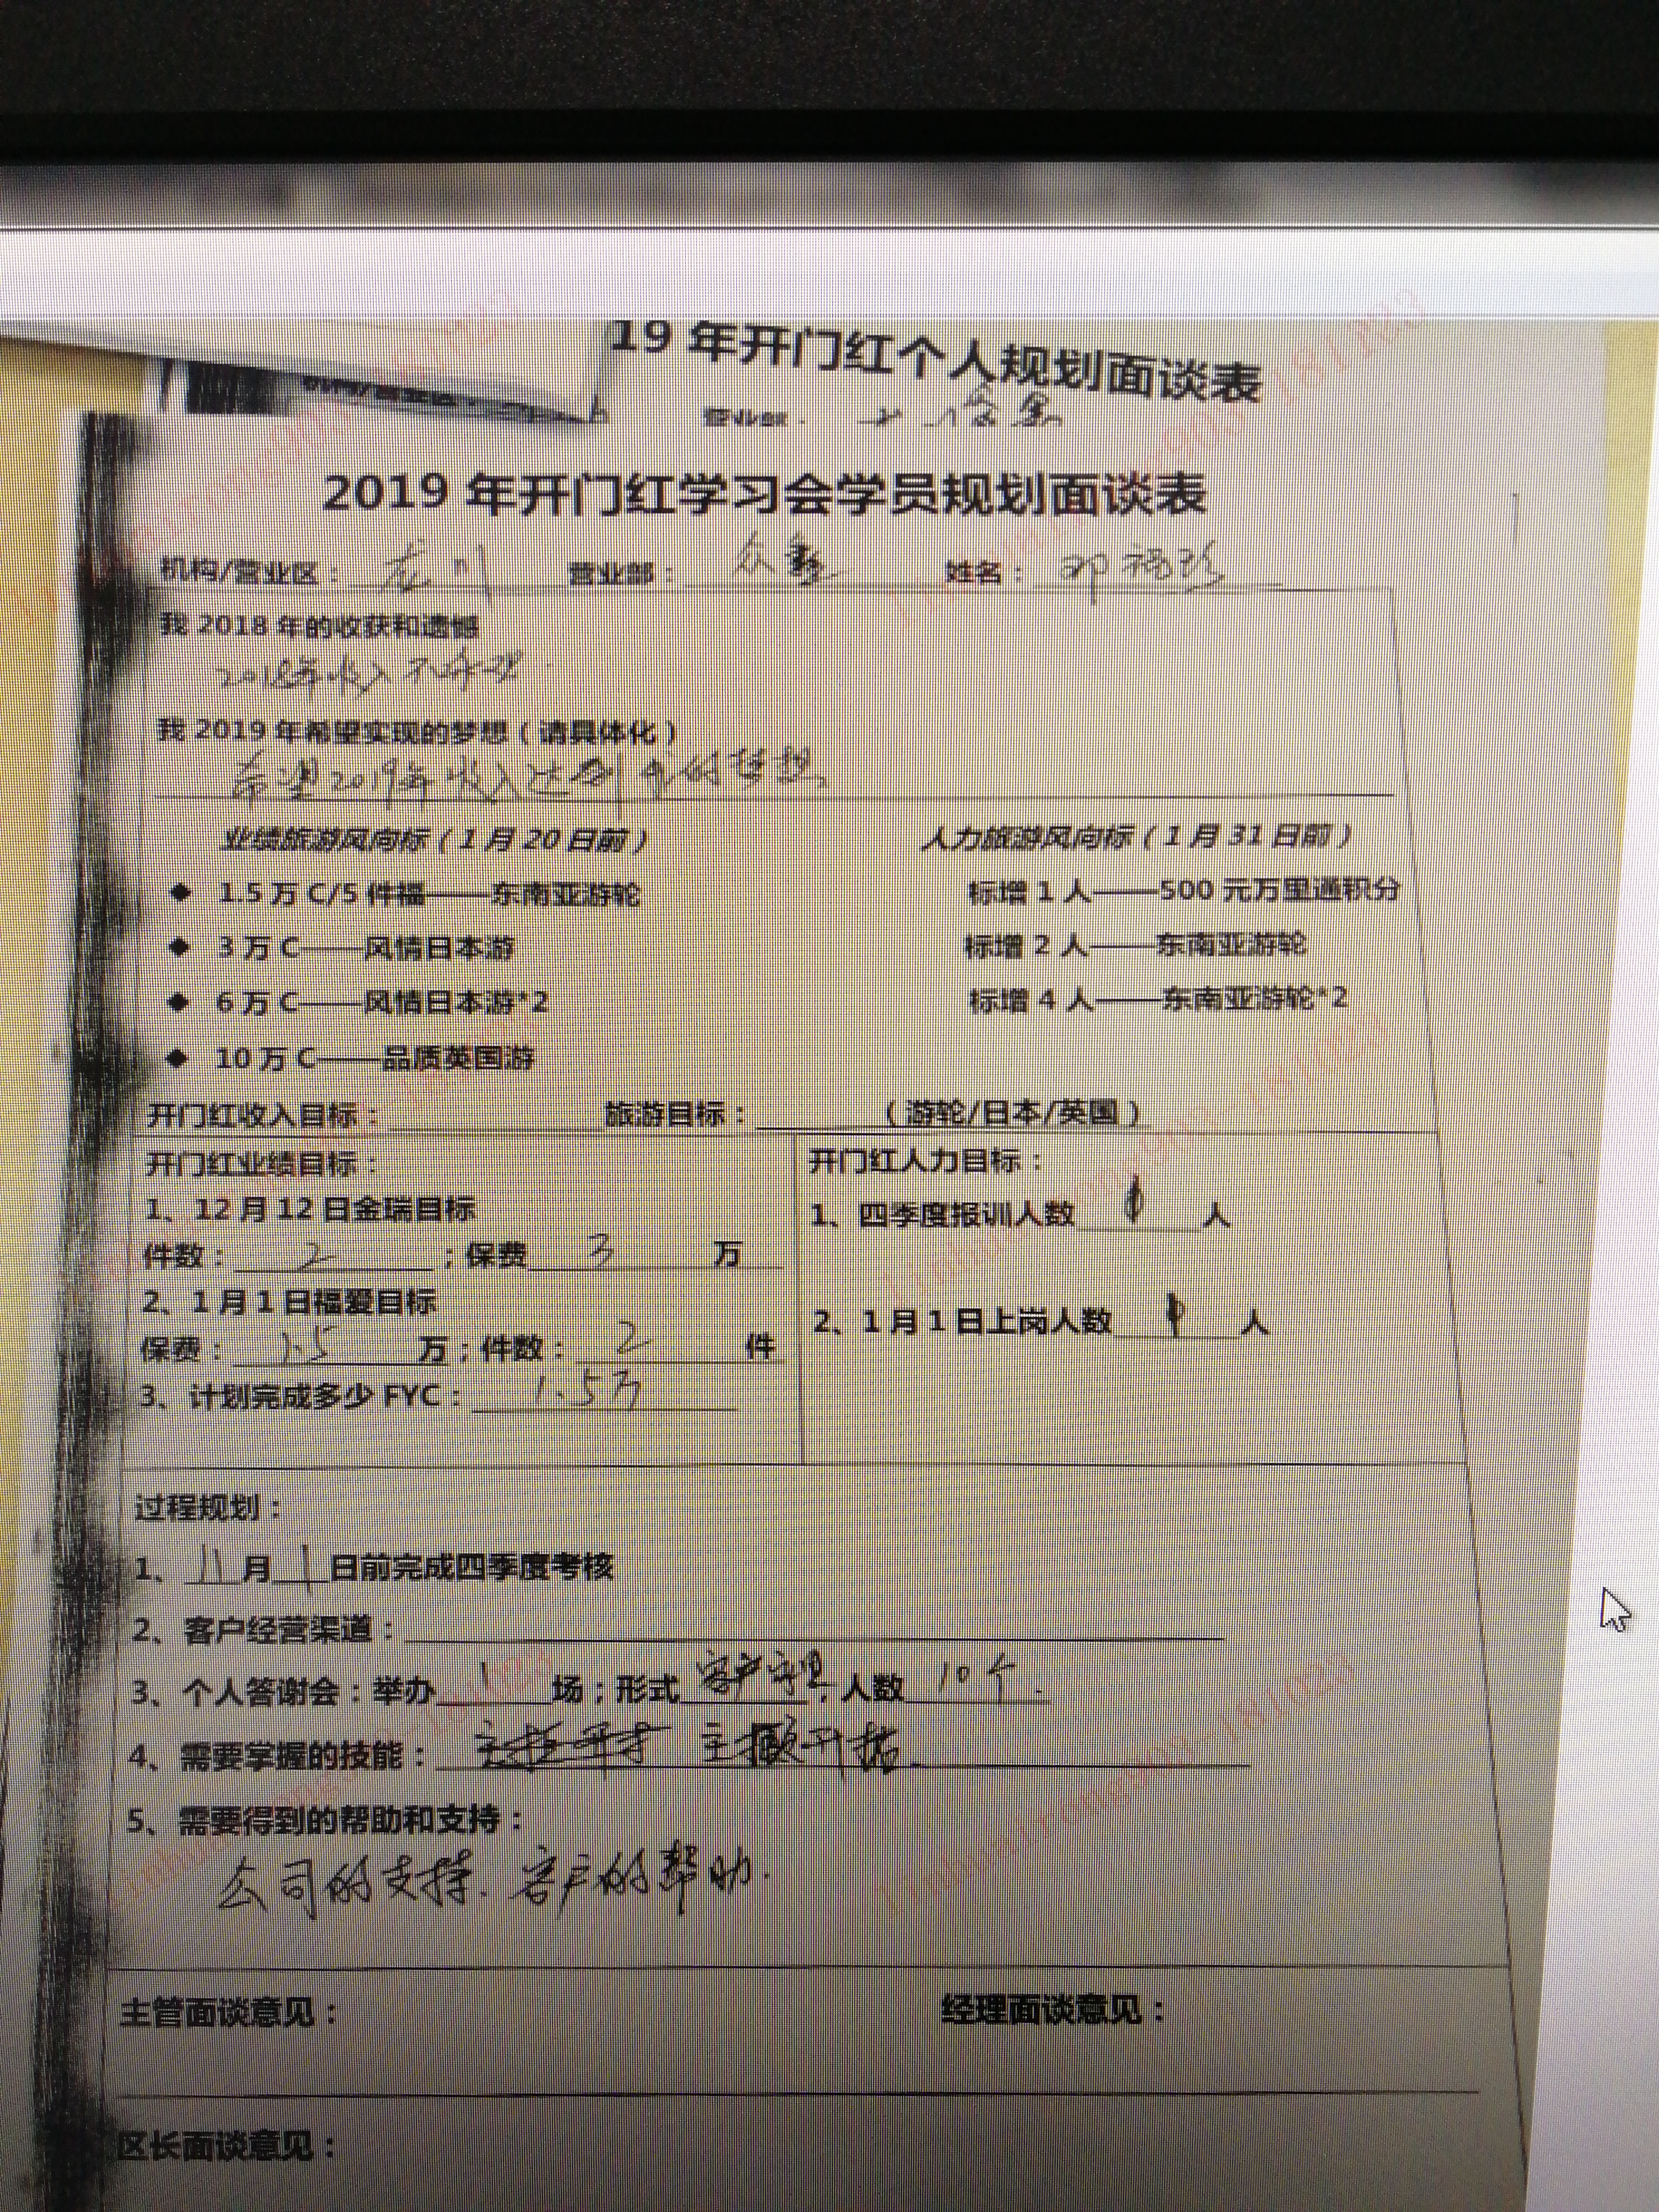 19 年开门红个人规划面谈表
营业部：
2019 年开门红学习会学员规划面谈表
机构/营业区：龙川 营业部：众鑫 姓名：邓福珍
我 2018 年的收获和遗憾
2018年收入不合理
我 2019 年希望实现的梦想（请具体化）
希望2019年收入达到我的梦想
业绩旅游风向标（1 月 20 日前） 人力旅游风向标（1 月 31 日前）
◆ 1.5 万 C/5 件福——东南亚游轮 标增 1 人——500 元万里通积分
◆ 3 万 C——风情日本游 标增 2 人——东南亚游轮
◆ 6 万 C——风情日本游*2 标增 4 人——东南亚游轮*2
◆ 10 万 C——品质英国游
开门红收入目标：旅游目标：（游轮/日本/英国）
开门红业绩目标： 开门红人力目标：
1、12 月 12 日金瑞目标 1、四季度报训人数 人
件数：2；保费 3 万
2、1 月 1 日福爱目标 2、1 月 1 日上岗人数 人
保费：1.5 万；件数：2 件
3、计划完成多少 FYC：1.5万
过程规划：
1、11月1日前完成四季度考核
2、客户经营渠道：
3、个人答谢会：举办1场；形式客户，人数10个.
4、需要掌握的技能：主顾开拓.
5、需要得到的帮助和支持：
公司的支持.客户的帮助.
主管面谈意见： 经理面谈意见：
区长面谈意见：